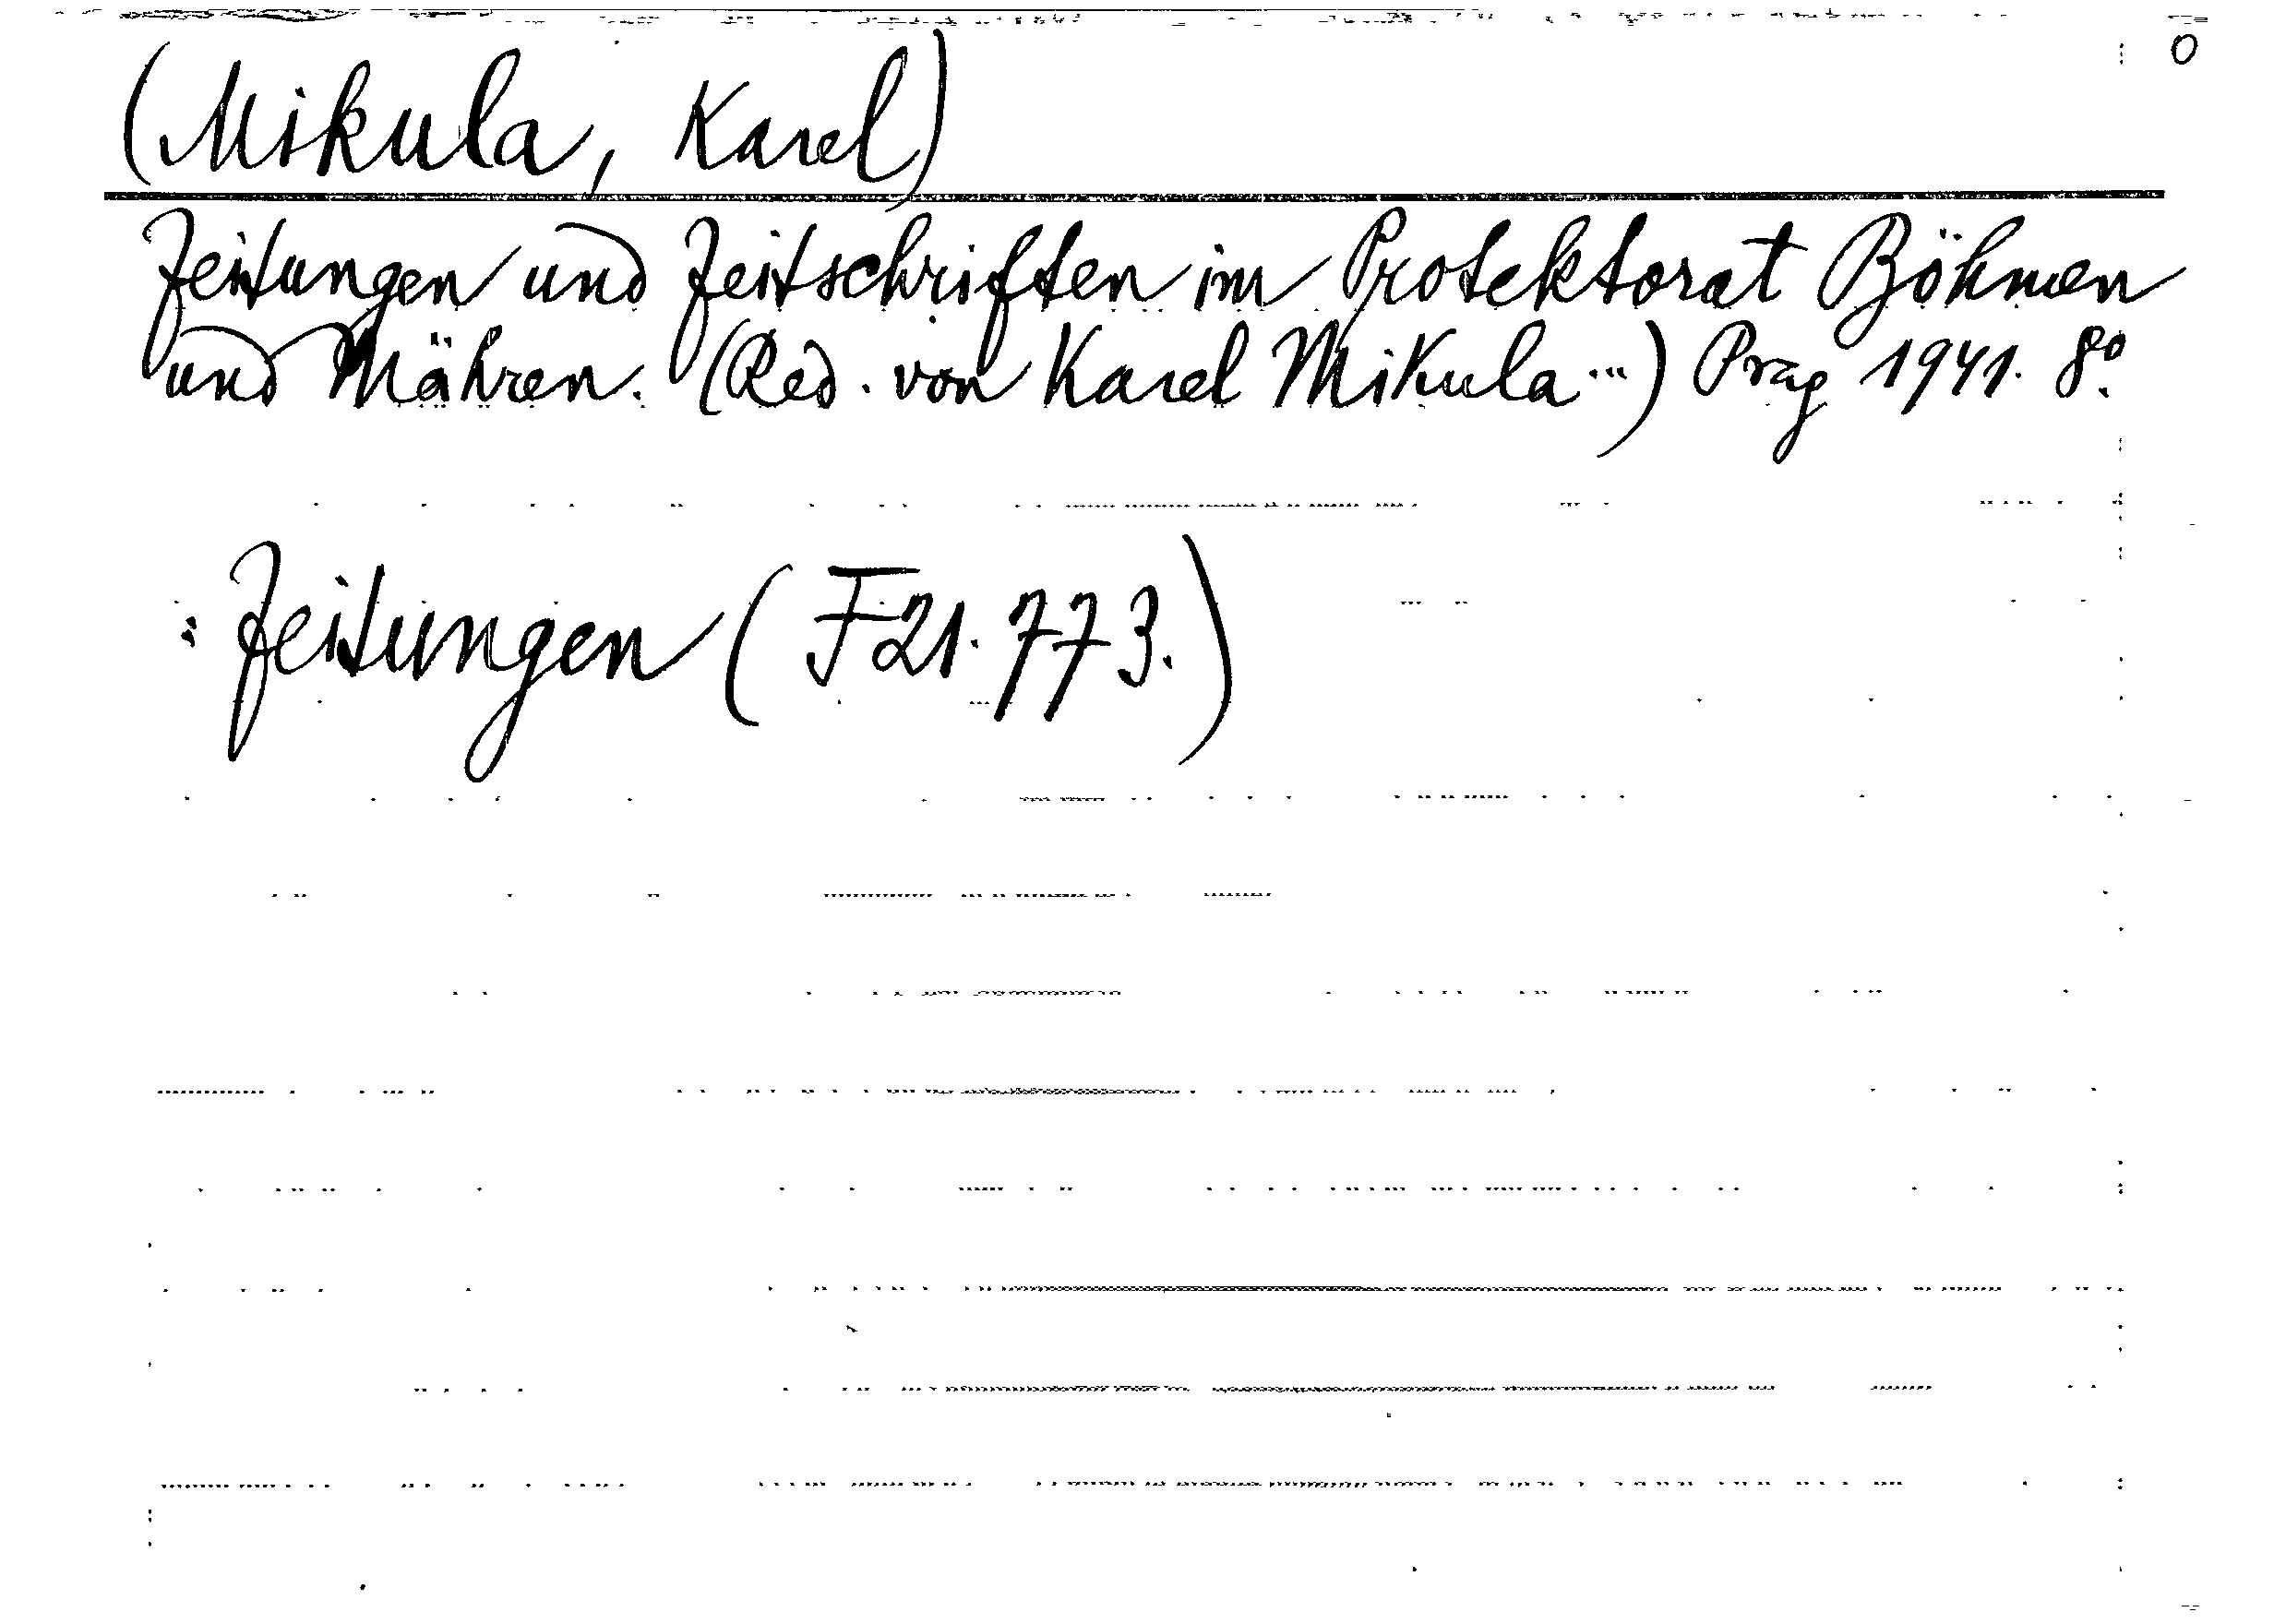 0
(Mikula, Karel)
Zeitungen und Zeitschriften im Protektorat Böhmen
und Mähren. (Red. von Karel Mikula...) Prag 1941. 8°.
: Zeitungen (F21.773.)